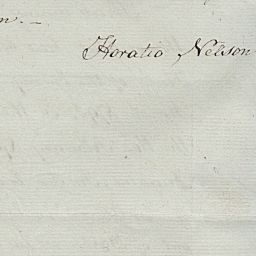 Horatio Nelson